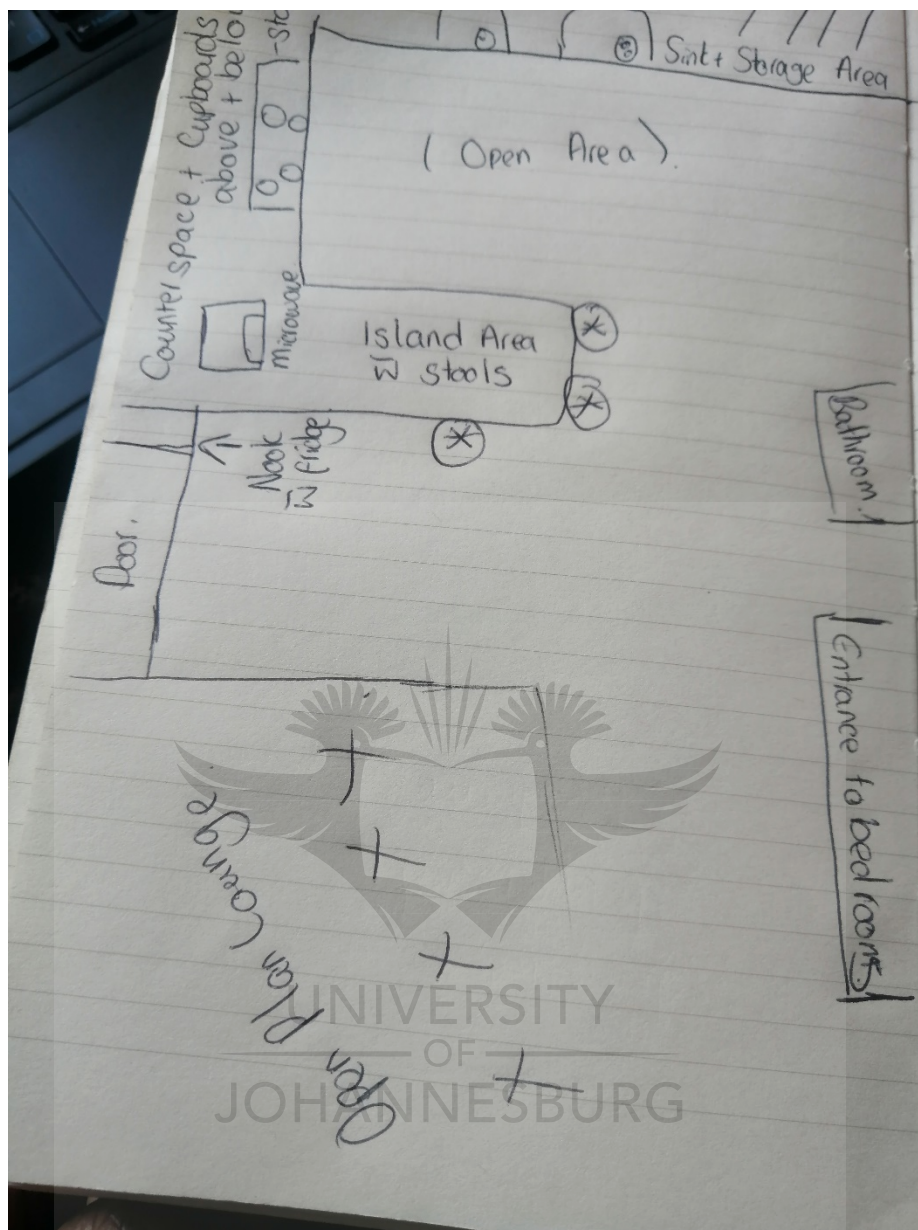 Sink + Storage Area
Counter space + Cupboards
above + below
-sto
( Open Area ).
microwave
Island Area
w̄ stools
Nook
w̄ fridge
Door.
Bathroom.
Entrance to bedrooms.
Open Plan Lounge.
UNIVERSITY
OF
JOHANNESBURG